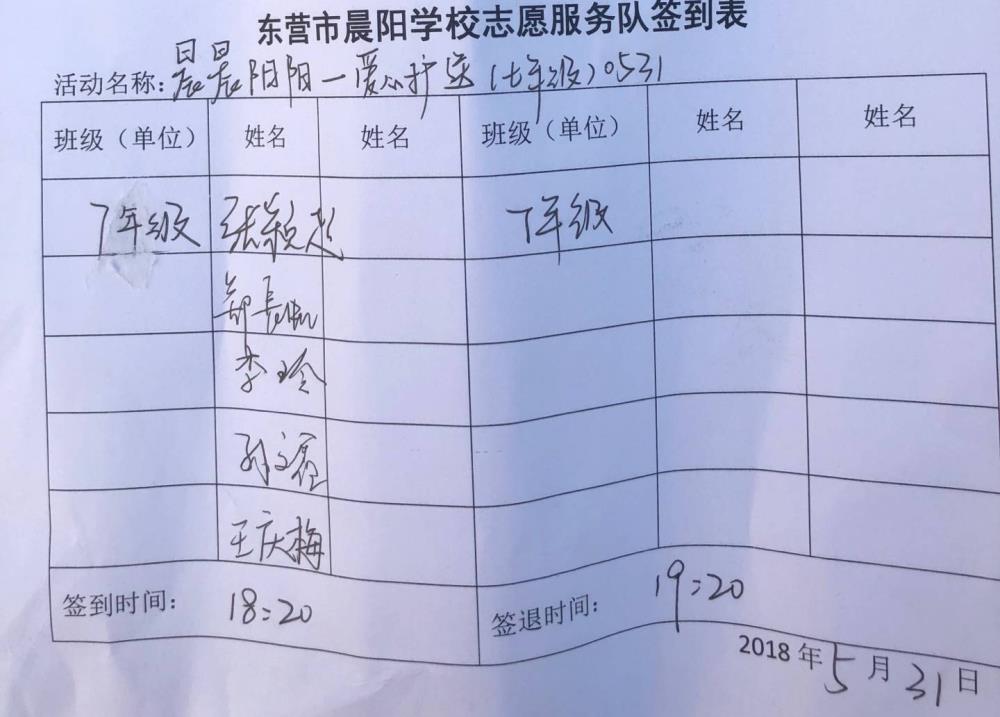 东营市晨阳学校志愿服务队签到表
活动名称:晨晨阳阳一爱心护送(七年级)0531
班级（单位） 姓名 姓名 班级（单位） 姓名 姓名
7年级 张颖 7年级
郭长
李玲
孙文
王庆梅
签到时间: 18:20 签退时间: 19:20
2018年5月31日